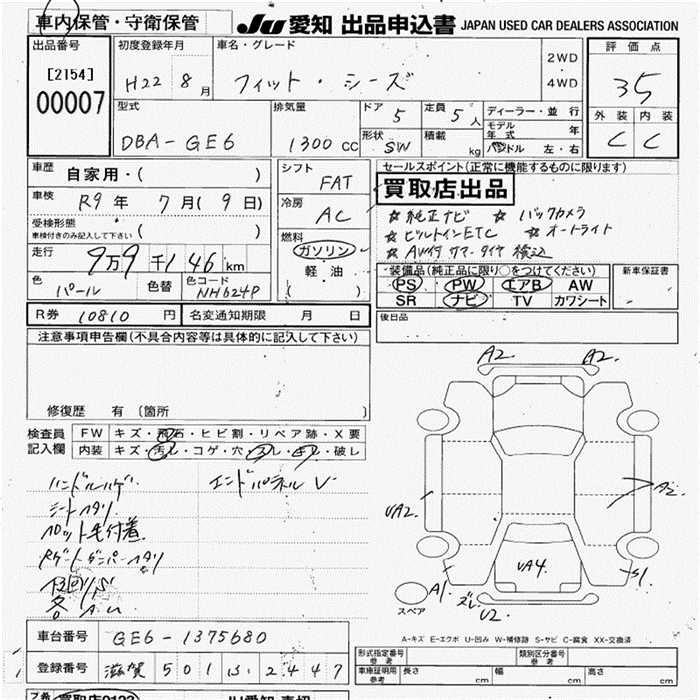 車内保管・守衛保管
JU 愛知 出品申込書 JAPAN USED CAR DEALERS ASSOCIATION
出品番号
[2154]
00007
初度登録年月
H22 8月
車名・グレード
フィット・シーズ
2WD
4WD
評価点
3.5
外装 内装
C C
型式
DBA-GE6
排気量
1300cc
ドア 5
定員 5人
形状 SW
積載 kg
ディーラー・並行
モデル年式 年
ハンドル 左・右
車歴 自家用・( )
車検 R9年 7月(9日)
受検形態
車検付きのみ記入して下さい ( )
走行 9万9千146km
色 パール
色替
色コード NH624P
シフト FAT
冷房 AC
燃料
ガソリン
軽油
( )
セールスポイント(正常に機能するものに限ります)
買取店出品
☆純正ナビ ☆バックカメラ
☆ビルトインETC ☆オートライト
☆AW付サマータイヤ積込
装備品(純正品に限り○をつけてください)
PS PW エアB AW
SR ナビ TV カワシート
新車保証書
後日品
R券 10810円
名変通知期限 月 日
注意事項申告欄(不具合内容等は具体的に記入して下さい)
修復歴 有 (箇所 )
検査員記入欄
FW キズ・飛石・ヒビ割・リペア跡・X要
内装 キズ・汚レ・コゲ・穴・スレ・ハゲ・破レ
ハンドルハゲ エンドパネルV
シートヘタリ
フロット毛付着
Rゲートダンパーヘタリ
A2. A2.
UA2.
A2.
UA4.
A1. ズレ U2. S1.
スペア
A-キズ E-エクボ U-凹み W-補修跡 S-サビ C-腐食 XX-交換済
車台番号 GE6-1375680
登録番号 滋賀 501 2447
形式指定番号 参考
類別区分番号 参考
車庫証明用 参考 長さ cm 幅 cm 高さ cm
買取店0123
JU愛知